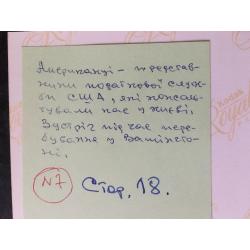 Американці – представ-
ники податкової служ-
би США, які консуль-
тували нас у Києві.
Зустріч під час пере-
бування у Вашінгто-
ні.
N7 Стор. 18.
Kodak